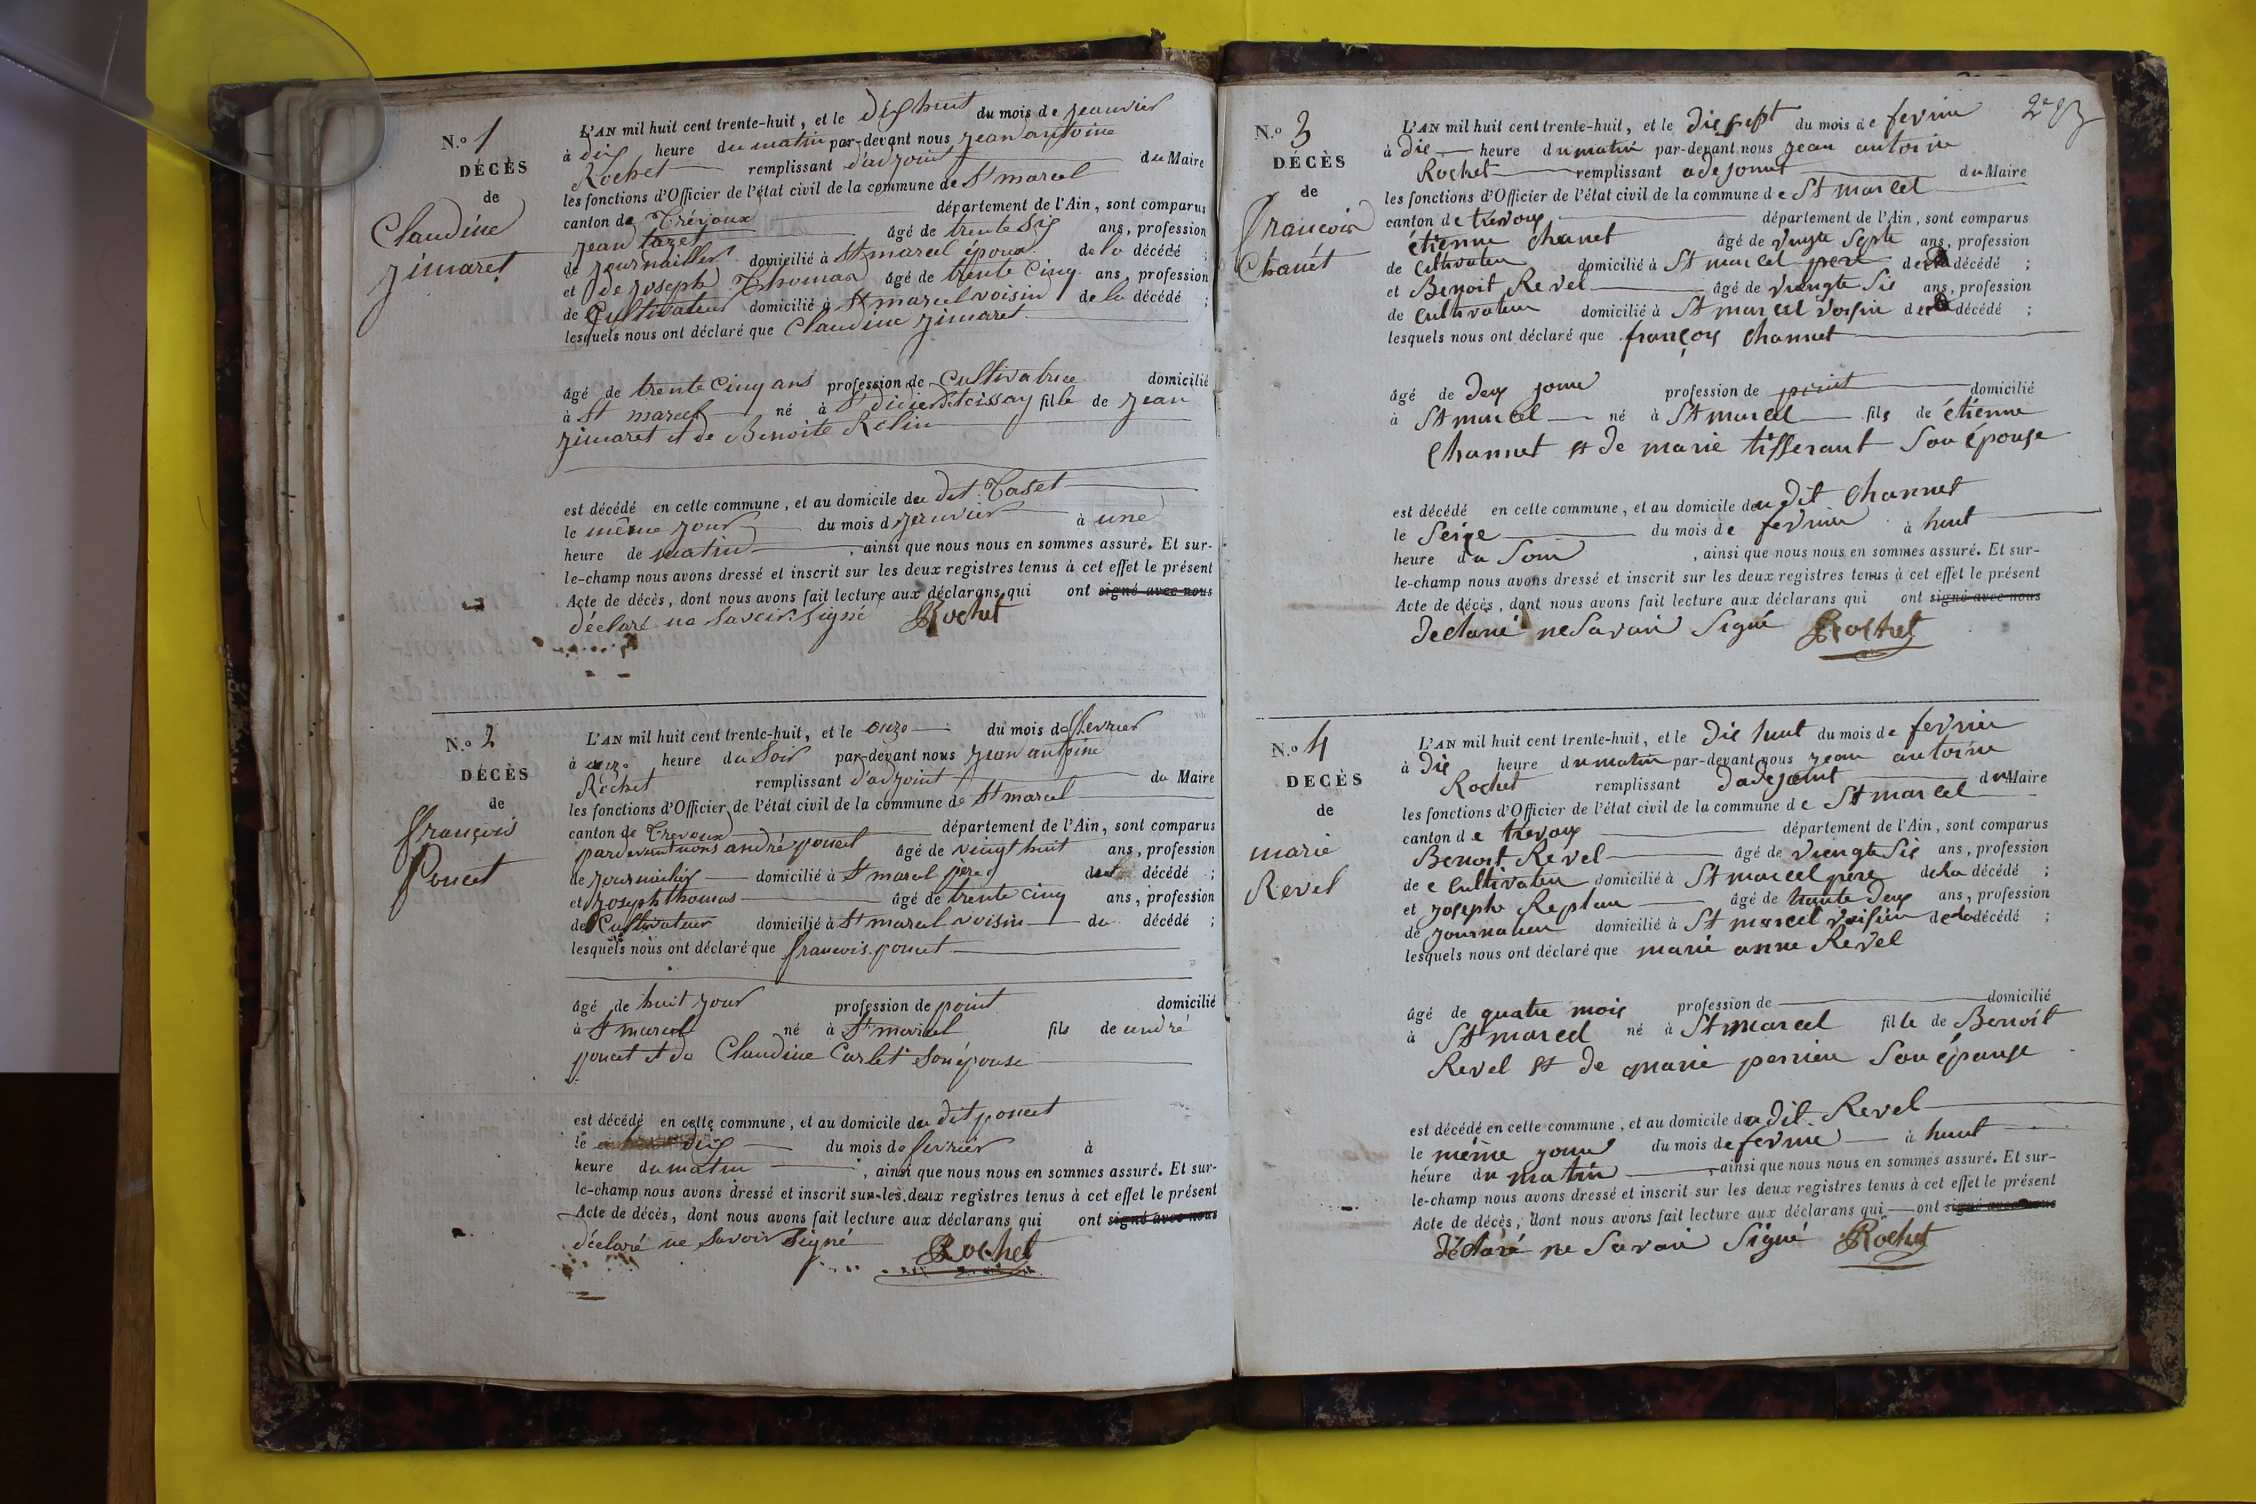 N.o 1
DÉCÈS
de
Claudine
jimaret
L'AN mil huit cent trente-huit, et le dix huit du mois de jeanvier
à dix heure du matin par-devant nous jean antoine
Rochet remplissant d'adjoint du Maire
les fonctions d'Officier de l'état civil de la commune de St marcel
canton de Trévoux département de l'Ain, sont comparus
jean tazet âgé de trente six ans, profession
de journaillier domicilié à St marcel époux de la décédé ;
et de joseph Thomas âgé de trente cinq ans, profession
de Cultivateur domicilié à St marcel voisin de la décédé ;
lesquels nous ont déclaré que Claudine jimaret
âgé de trente cinq ans profession de Cultivatrice domicilié
à St marcel né à St didier fille de jean
jimaret et de Benoite
est décédé en cette commune, et au domicile du dit Taset
le même jour du mois d jenvier à une
heure de matin, ainsi que nous nous en sommes assuré. Et sur-
le-champ nous avons dressé et inscrit sur les deux registres tenus à cet effet le présent
Acte de décès, dont nous avons fait lecture aux déclarans qui ont signé avec nous
déclaré ne savoir signé Rochet
N.o 2
DÉCÈS
de
françois
Poncet
L'AN mil huit cent trente-huit, et le onze du mois de fevrier
à onze heure du Soir par-devant nous jean antoine
Rochet remplissant d'adjoint du Maire
les fonctions d'Officier de l'état civil de la commune de St marcel
canton de Trevoux département de l'Ain, sont comparus
pardevant nous andré poncet âgé de vingt huit ans, profession
de journailier domicilié à St marcel père du décédé ;
et joseph thomas âgé de trente cinq ans, profession
de Cultivateur domicilié à St marcel voisin du décédé ;
lesquels nous ont déclaré que francois poncet
âgé de huit jour profession de point domicilié
à St marcel né à St marcel fils de andré
poncet et de Claudine Carlet son épouse
est décédé en cette commune, et au domicile du dit poncet
le dix du mois de fevrier à
heure du matin, ainsi que nous nous en sommes assuré. Et sur-
le-champ nous avons dressé et inscrit sur les deux registres tenus à cet effet le présent
Acte de décès, dont nous avons fait lecture aux déclarans qui ont signé avec nous
déclaré ne savoir signé Rochet
N.o 3
DÉCÈS
de
François
Chanet
L'AN mil huit cent trente-huit, et le dis sept du mois de fevrie
à dis heure du matin par-devant nous jean antoine
Rochet remplissant adejoint du Maire
les fonctions d'Officier de l'état civil de la commune de St marcel
canton de trevoux département de l'Ain, sont comparus
étienne chanet âgé de vingte septe ans, profession
de cultivateu domicilié à St marcel pere de décédé ;
et Benoit Revel âgé de viengte sis ans, profession
de cultivateu domicilié à St marcel voisin de décédé ;
lesquels nous ont déclaré que françois channet
âgé de deux jour profession de point domicilié
à St marcel né à St marcel fils de étienne
channet et de marie tisserant son épouse
est décédé en cette commune, et au domicile du dit channet
le seize du mois de fevrier à huit
heure du soir, ainsi que nous nous en sommes assuré. Et sur-
le-champ nous avons dressé et inscrit sur les deux registres tenus à cet effet le présent
Acte de décès, dont nous avons fait lecture aux déclarans qui ont signé avec nous
declaré ne savoir signé Rochet
N.o 4
DÉCÈS
de
marie
Revel
L'AN mil huit cent trente-huit, et le dis huit du mois de fevrier
à dis heure du matin par-devant nous jean antoine
Rochet remplissant dadejoint du Maire
les fonctions d'Officier de l'état civil de la commune de St marcel
canton de trevoux département de l'Ain, sont comparus
Benoit Revel âgé de viengte sis ans, profession
de cultivateu domicilié à St marcel père de la décédé ;
et joseph Replan âgé de trante deux ans, profession
de journalier domicilié à St marcel voisin de la décédé ;
lesquels nous ont déclaré que marie anne Revel
âgé de quatre mois profession de domicilié
à St marcel né à St marcel fille de Benoit
Revel et de marie perrieu son épouse
est décédé en cette commune, et au domicile du dit Revel
le même jour du mois de fevrie à huit
heure du matin, ainsi que nous nous en sommes assuré. Et sur-
le-champ nous avons dressé et inscrit sur les deux registres tenus à cet effet le présent
Acte de décès, dont nous avons fait lecture aux déclarans qui ont signé avec nous
déclaré ne savoir signé Rochet